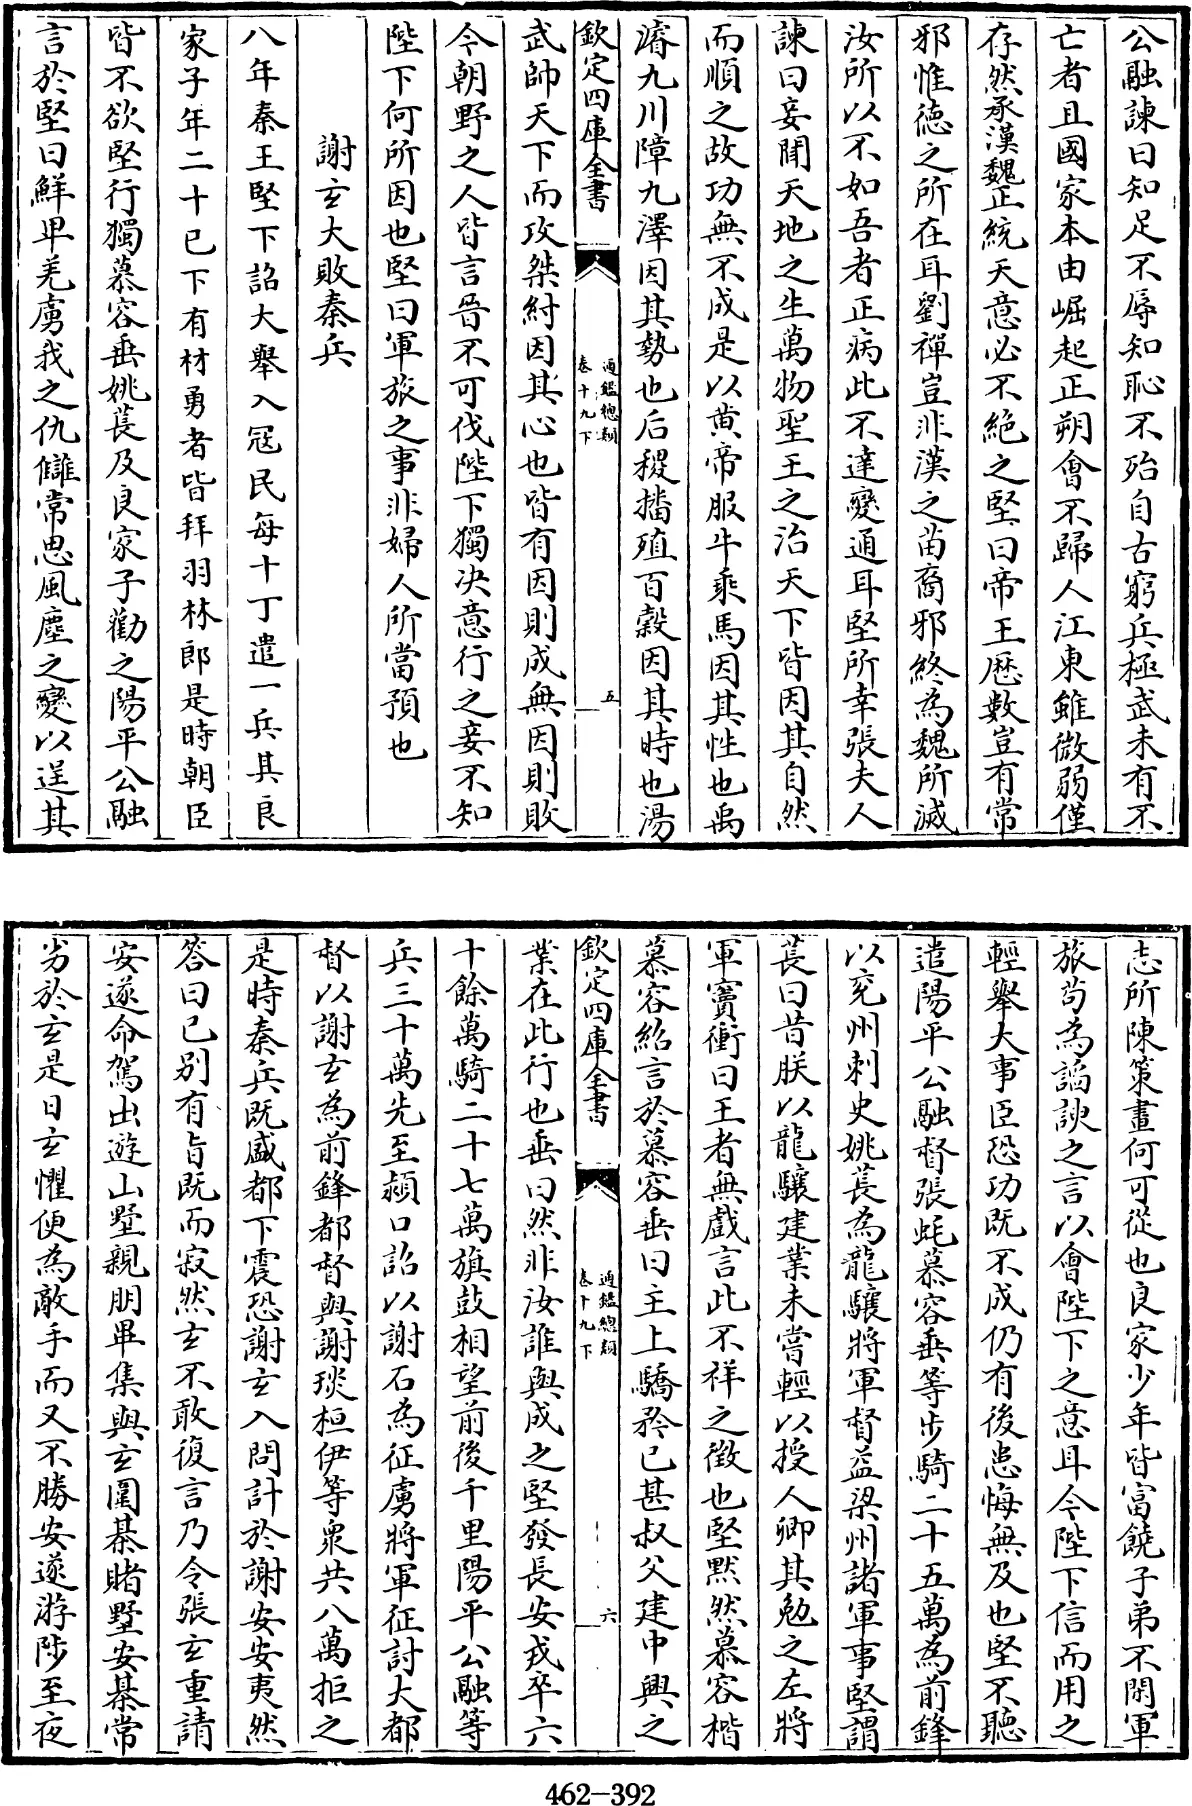 公融諫曰知足不辱知恥不殆自古窮兵極武未有不
亡者且國家本由崛起正朔會不歸人江東雖微弱僅
存然承漢魏正統天意必不絶之堅曰帝王厯數豈有常
邪惟徳之所在耳劉禪豈非漢之苗裔邪終為魏所滅
汝所以不如吾者正病此不達變通耳堅所幸張夫人
諫曰妾聞天地之生萬物聖王之治天下皆因其自然
而順之故功無不成是以黄帝服牛乘馬因其性也禹
濬九川障九澤因其勢也后稷播殖百榖因其時也湯
欽定四庫全書
通鑑總類
卷十九下
五
武帥天下而攻桀紂因其心也皆有因則成無因則敗
今朝野之人皆言晉不可伐陛下獨决意行之妾不知
陛下何所因也堅曰軍旅之事非婦人所當預也
謝玄大敗秦兵
八年秦王堅下詔大舉入冦民每十丁遣一兵其良
家子年二十已下有材勇者皆拜羽林郎是時朝臣
皆不欲堅行獨慕容垂姚萇及良家子勸之陽平公融
言於堅曰鮮卑羌虜我之仇讎常思風塵之變以逞其
志所陳策畫何可從也良家少年皆富饒子弟不閑軍
旅苟為諂諛之言以會陛下之意耳今陛下信而用之
輕舉大事臣恐功既不成仍有後患悔無及也堅不聽
遣陽平公融督張蚝慕容垂等步騎二十五萬為前鋒
以兖州刺史姚萇為龍驤將軍督益梁州諸軍事堅謂
萇曰昔朕以龍驤建業未嘗輕以授人卿其勉之左將
軍竇衝曰王者無戲言此不祥之徴也堅黙然慕容楷
慕容紹言於慕容垂曰主上驕矜已甚叔父建中興之
欽定四庫全書
通鑑總類
卷十九下
六
業在此行也垂曰然非汝誰與成之堅發長安戎卒六
十餘萬騎二十七萬旗鼓相望前後千里陽平公融等
兵三十萬先至潁口詔以謝石為征虜將軍征討大都
督以謝玄為前鋒都督與謝琰桓伊等衆共八萬拒之
是時秦兵既盛都下震恐謝玄入問計於謝安安夷然
答曰已别有旨既而寂然玄不敢復言乃令張玄重請
安遂命駕出遊山墅親朋畢集與玄圍棊賭墅安棊常
劣於玄是日玄懼便為敵手而又不勝安遂游陟至夜
462-392